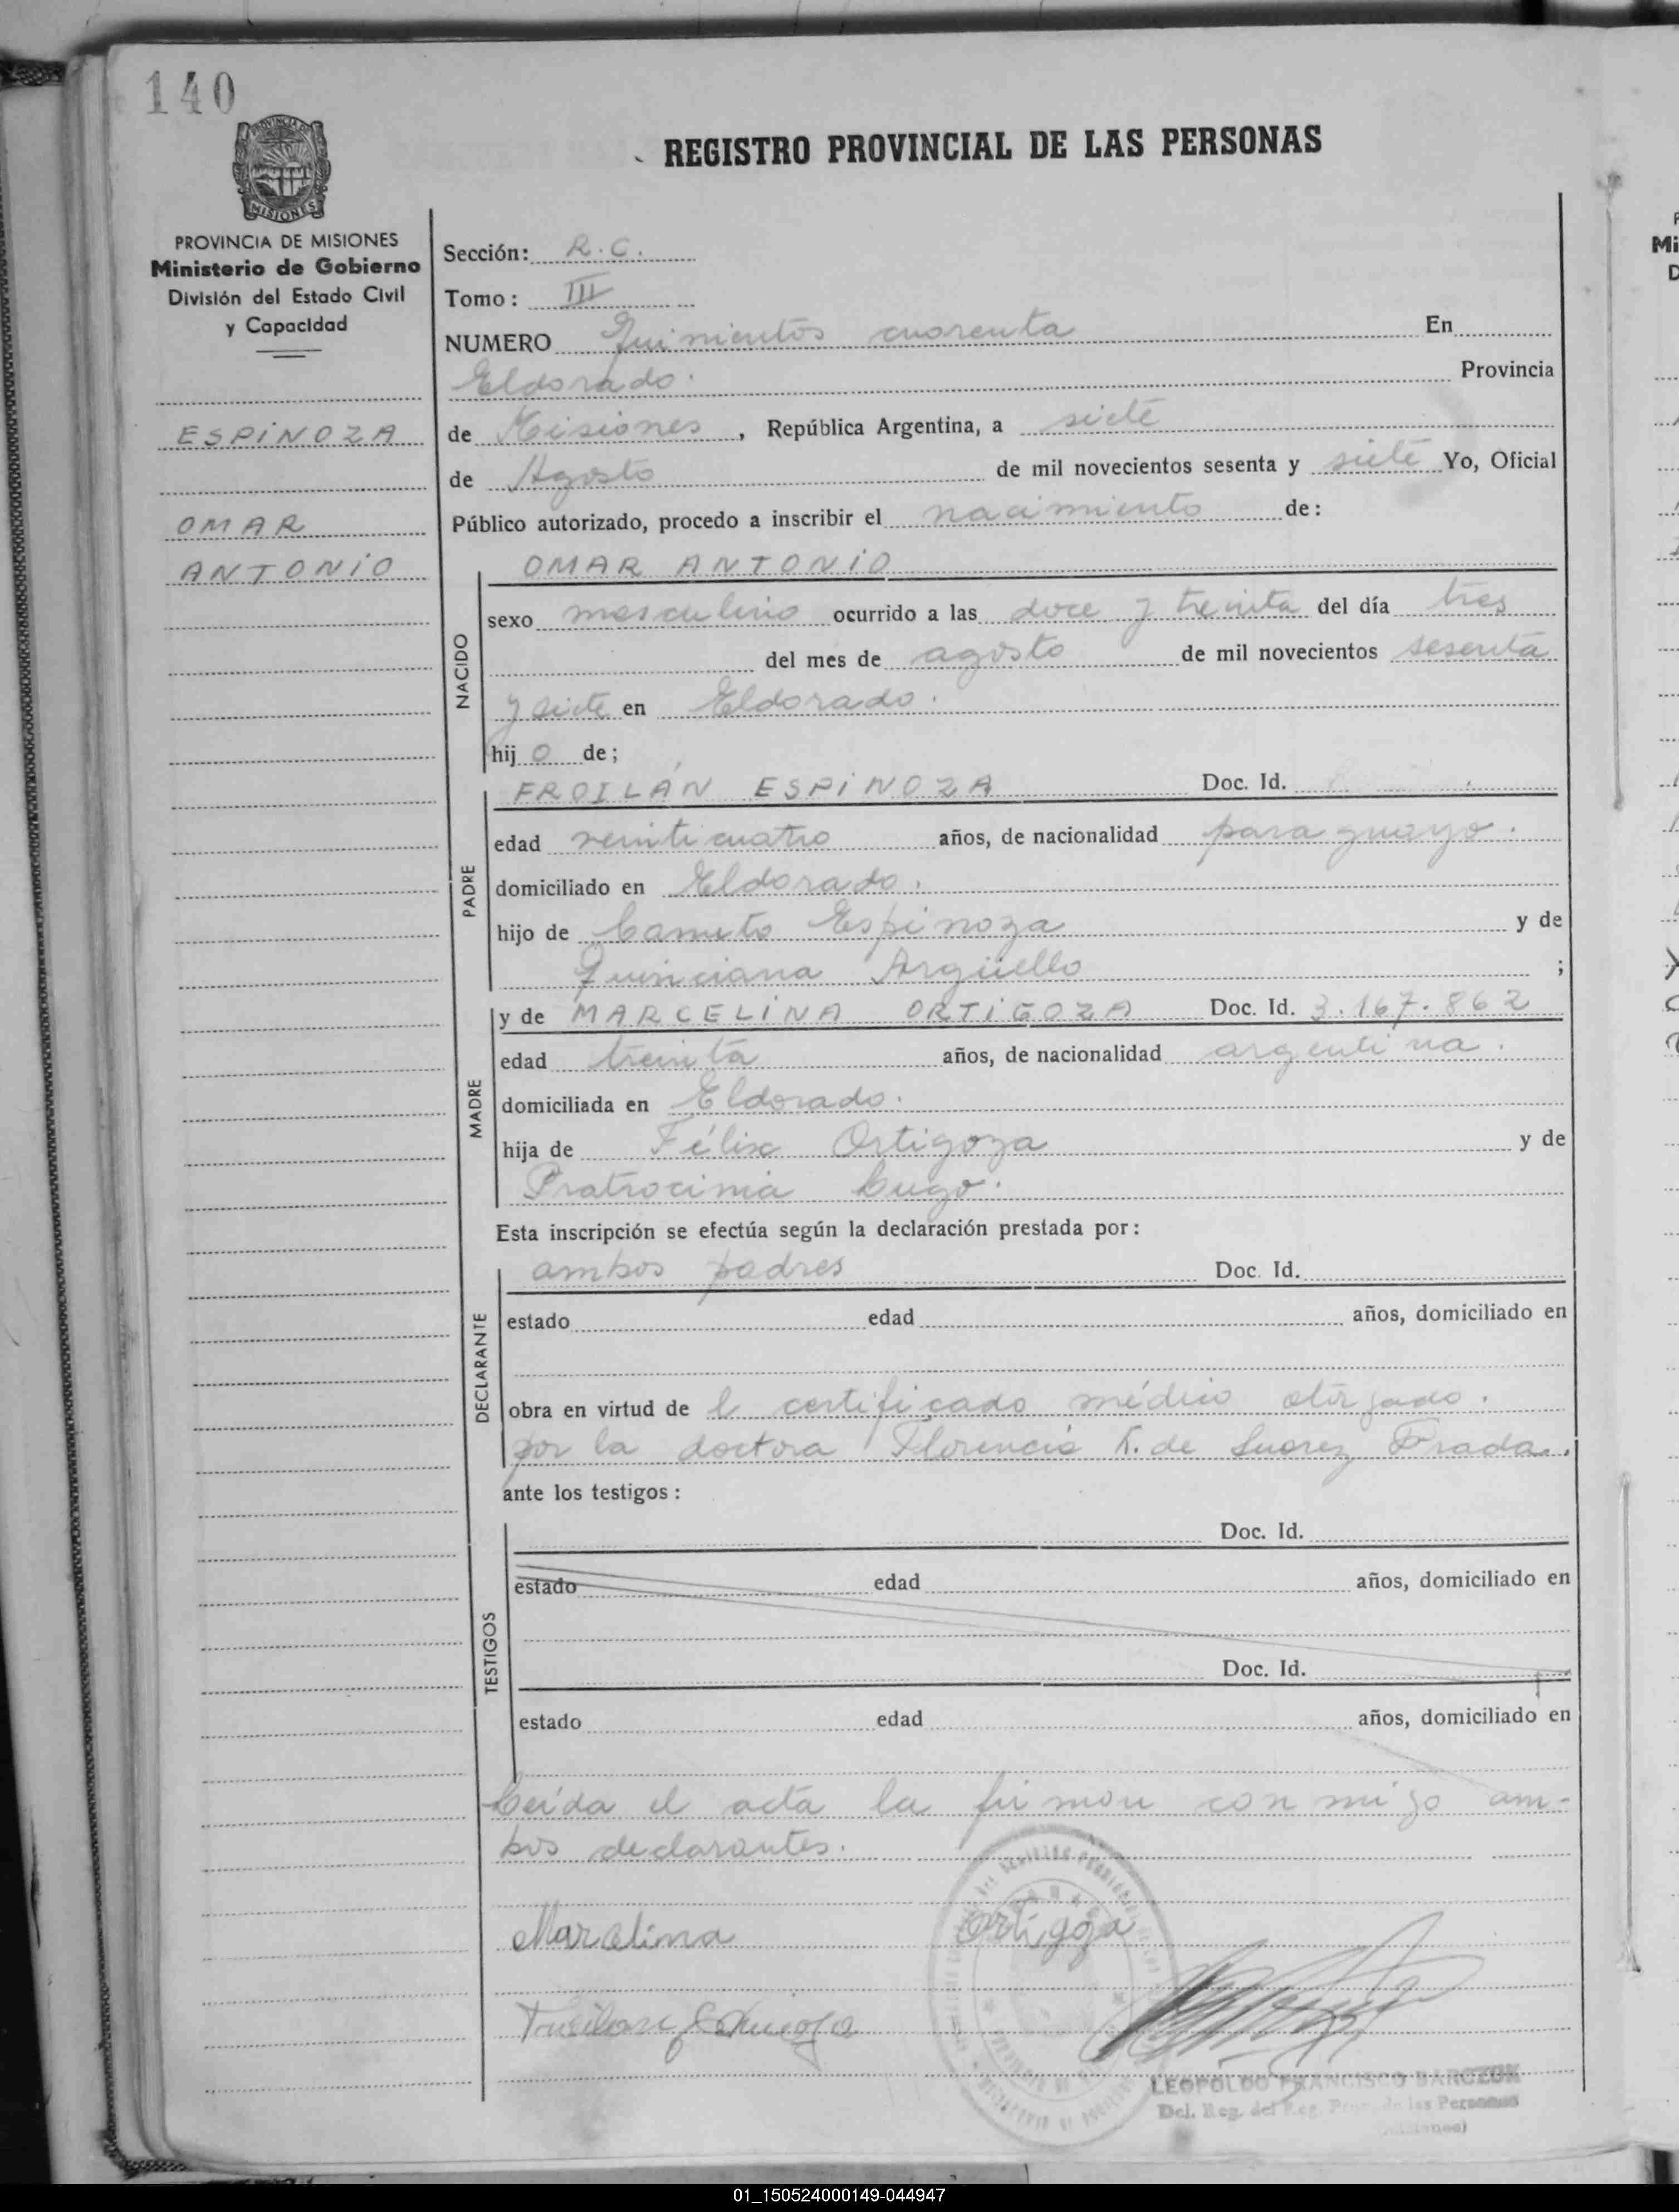 140
REGISTRO PROVINCIAL DE LAS PERSONAS
MISIONES
PROVINCIA DE MISIONES
Ministerio de Gobierno
División del Estado Civil
y Capacidad
ESPINOZA
OMAR
ANTONIO
Sección: R.C.
Tomo: III
NUMERO Quinientos cuarenta En
Eldorado. Provincia
de Misiones, República Argentina, a siete
de Agosto de mil novecientos sesenta y siete Yo, Oficial
Público autorizado, procedo a inscribir el nacimiento de:
NACIDO
OMAR ANTONIO
sexo masculino ocurrido a las doce y treinta del día tres
del mes de agosto de mil novecientos sesenta
y siete en Eldorado.
hij o de;
PADRE
FROILÁN ESPINOZA Doc. Id.
edad veinticuatro años, de nacionalidad paraguayo.
domiciliado en Eldorado.
hijo de Canuto Espinoza y de
Quinciana Argüello ;
MADRE
y de MARCELINA ORTIGOZA Doc. Id. 3.167.862
edad treinta años, de nacionalidad argentina.
domiciliada en Eldorado.
hija de Félix Ortigoza y de
Pratrocinia Lugo.
Esta inscripción se efectúa según la declaración prestada por:
DECLARANTE
ambos padres Doc. Id.
estado edad años, domiciliado en
obra en virtud de l certificado médico otorgado.
por la doctora Florencia K. de Suarez Prada.
ante los testigos:
TESTIGOS
Doc. Id.
estado edad años, domiciliado en
Doc. Id.
estado edad años, domiciliado en
Leída el acta la firman conmigo am-
bos declarantes.
Marcelina Ortigoza
LEOPOLDO FRANCISCO BARCZUK
Del. Reg. del Reg. Prov. de las Personas
01_150524000149-044947